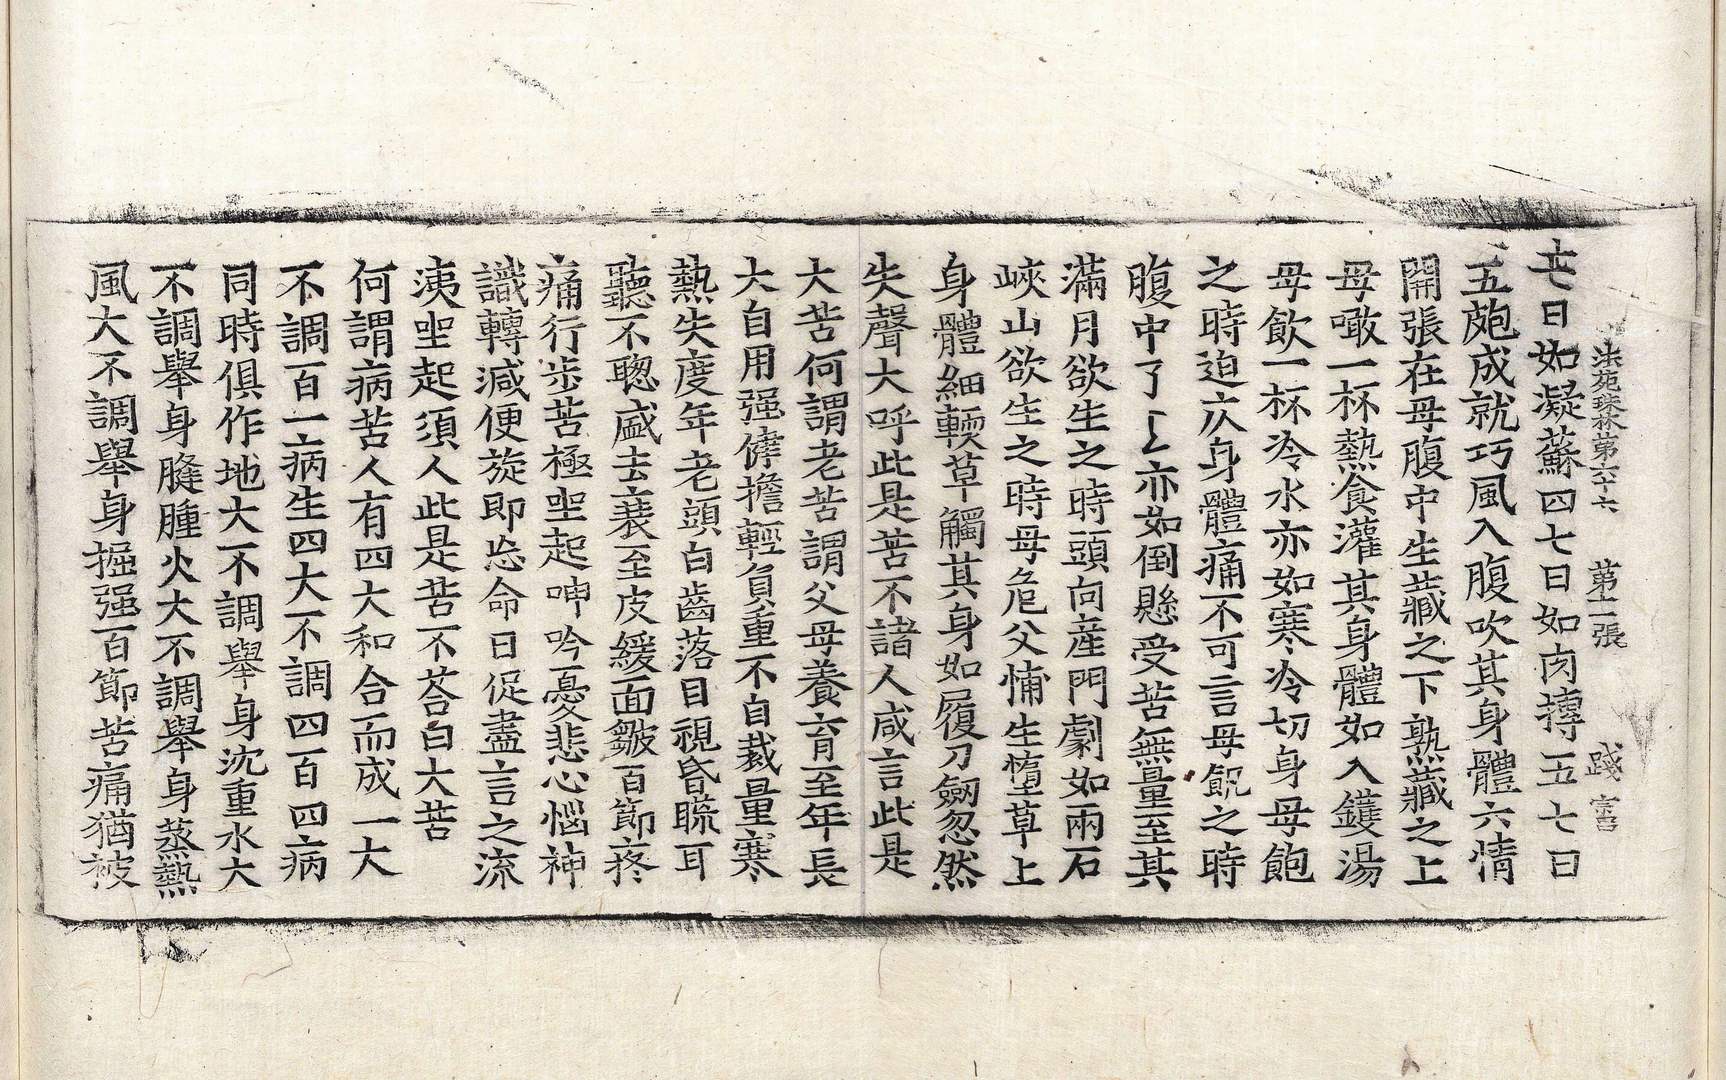 法苑珠林第六十六 第二張 踐 言
七日如凝蘇四七日如肉摶五七日
五皰成就巧風入腹吹其身體六情
開張在母腹中生藏之下熟藏之上
母噉一杯熱食灌其身體如入鑊湯
母飲一杯冷水亦如寒冷切身母飽
之時迫庂身體痛不可言母飢之時
腹中了了亦如倒懸受苦無量至其
滿月欲生之時頭向産門劇如兩石
峽山欲生之時母危父怖生墮草上
身體細輭草觸其身如履刀劒忽然
失聲大呼此是苦不諸人咸言此是
大苦何謂老苦謂父母養育至年長
大自用强偉擔輕負重不自裁量寒
熱失度年老頭白齒落目視𥇀䀮耳
聽不聰盛去衰至皮緩面皺百節疼
痛行步苦極坐起呻吟憂悲心惱神
識轉減便旋即忘命日促盡言之流
洟坐起須人此是苦不荅曰大苦
何謂病苦人有四大和合而成一大
不調百一病生四大不調四百四病
同時俱作地大不調舉身沈重水大
不調舉身膖腫火大不調舉身蒸熱
風大不調舉身掘强百節苦痛猶被